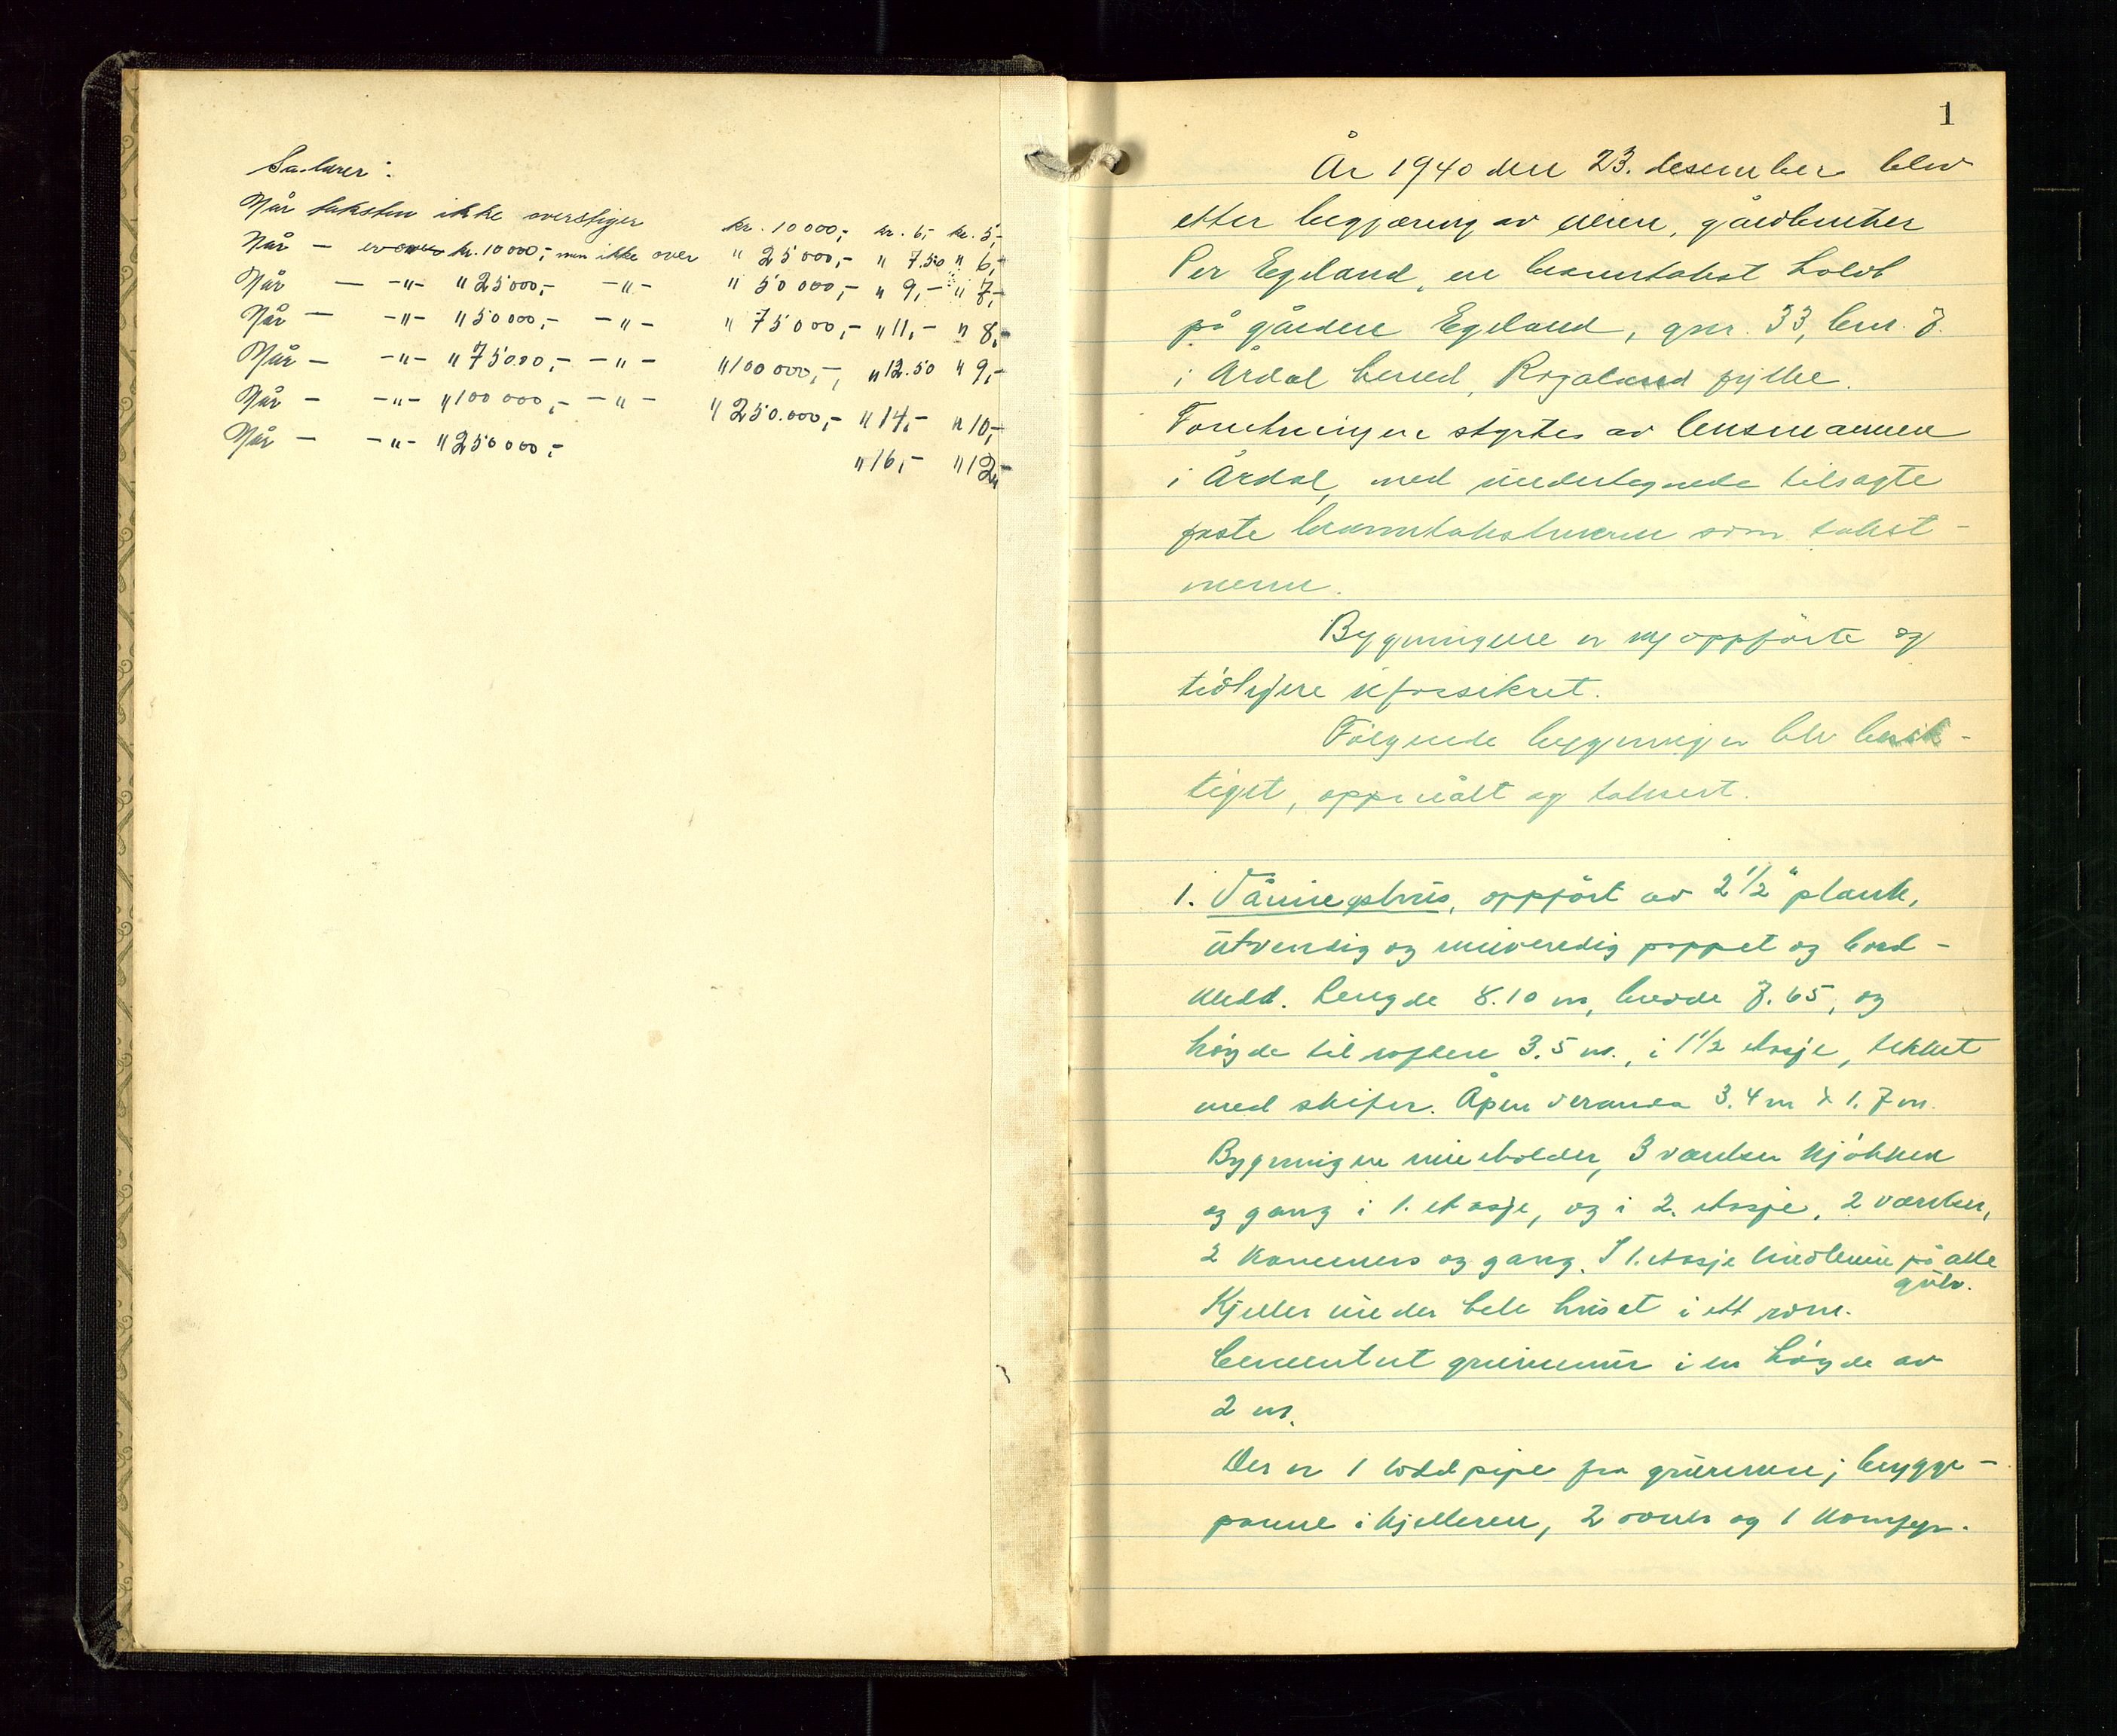 Salærer:
Når taksten ikke overstiger kr. 10000,- kr. 6,- kr. 5,-
Når — er over kr. 10000,- men ikke over " 25000,- " 7.50 " 6,-
Når — -"- " 25000,- -"- " 50000,- " 9,- " 7,-
Når — -"- " 50000,- -"- " 75000,- " 11,- " 8,-
Når — -"- " 75000,- -"- " 100000,- " 12.50 " 9,-
Når — -"- " 100000,- -"- " 250.000,- " 14,- " 10,-
Når — -"- " 250000,- " 16,- " 12,-
1
År 1940 den 23. desember blev
etter begjæring av eieren, gårdbruker
Per Egeland, en branntakst holdt
på gården Egeland, gnr. 33, bnr. 7.
i Årdal herred, Rogaland fylke.
Forretningen styrtes av lensmannen
i Årdal, med undertegnede tilsagte
faste branntakstmenn som takst-
menn.
Bygningene er nyoppførte og
tidligere uforsikret.
Følgende bygninger blev besik-
tiget, oppmålt og taksert.
1. Våningshus, oppført av 2 1/2" plank,
utvendig og innvendig pappet og bord-
kledd. Lengde 8.10 m, bredde 7.65, og
høyde til raften 3.5 m., i 1 1/2 etasje, tekket
med skifer. Åpen veranda 3.4 m x 1.7 m.
Bygningen inneholder, 3 værelser kjøkken
og gang i 1. etasje, og i 2. etasje, 2 værelser,
2 kammers og gang. I 1. etasje linoleum på alle
gulv.
Kjeller under hele huset i ett rom.
Cementert grunnmur i en høyde av
2 m.
Der er 1 loddpipe fra grunnen; brygge-
panne i kjelleren, 2 ovner og 1 komfyr.